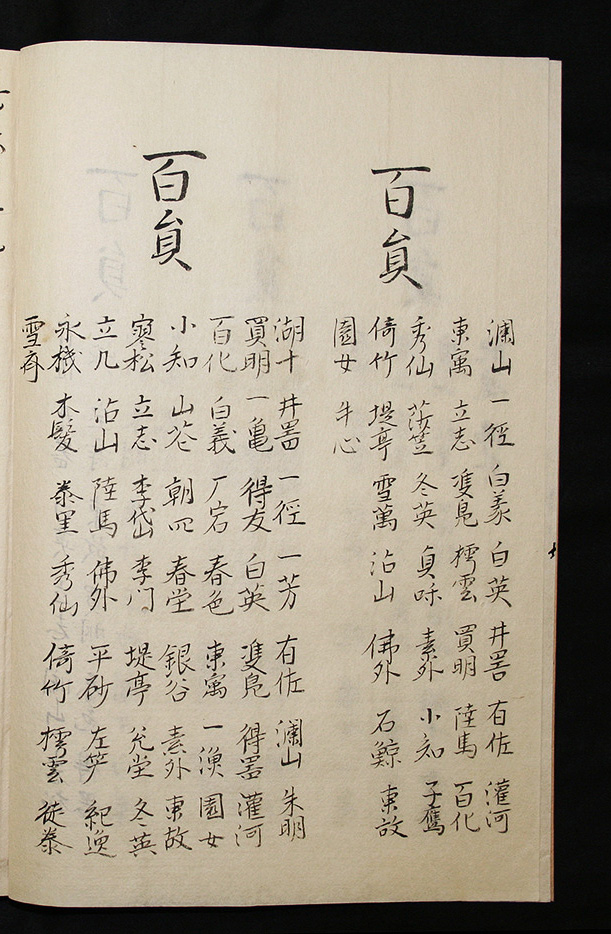 百員
瀾山 一徑 白義 白英 井畧 有佐 灌河
東寓 立志 雙鳧 樗雲 買明 陸馬 百化
秀仙 蓑笠 冬英 貞味 素外 小知 子鷹
倚竹 堤亭 雪萬 沾山 佛外 石鯨 東故
園女 牛心
百員
湖十 井畧 一徑 一芳 有佐 瀾山 朱明
買明 一亀 得友 白英 雙鳧 得畧 灌河
百化 白義 厂宕 春色 東寓 一漁 園女
小知 山茫 朝四 春堂 銀谷 素外 東故
寥松 立志 李岱 李门 堤亭 允堂 冬英
立几 沾山 陸馬 佛外 平砂 左笋 紀逸
永機 木髪 泰里 秀仙 倚竹 樗雲 徒泰
雪斎